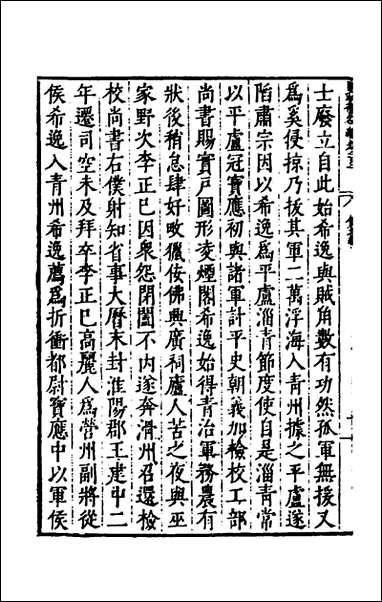 士廢立自此始希逸與賊角數有功然孤軍無援又
爲奚侵掠乃拔其軍二萬浮海入青州據之平盧遂
䧟肅宗因以希逸爲平盧淄青節度使自是淄青常
以平盧冠寶應初與諸軍計平史朝義加檢校工部
尚書賜實戸圖形凌煙閣希逸始得青治軍務農有
狀後稍怠肆好畋獵佞佛興廣祠廬人苦之夜與巫
家野次李正巳因衆怨閉闔不内遂奔滑州召還檢
校尚書右僕射知省事大曆末封淮陽郡王建中二
年遷司空未及拜卒李正巳高麗人爲營州副將從
侯希逸入青州希逸薦爲折衝都尉寶應中以軍侯